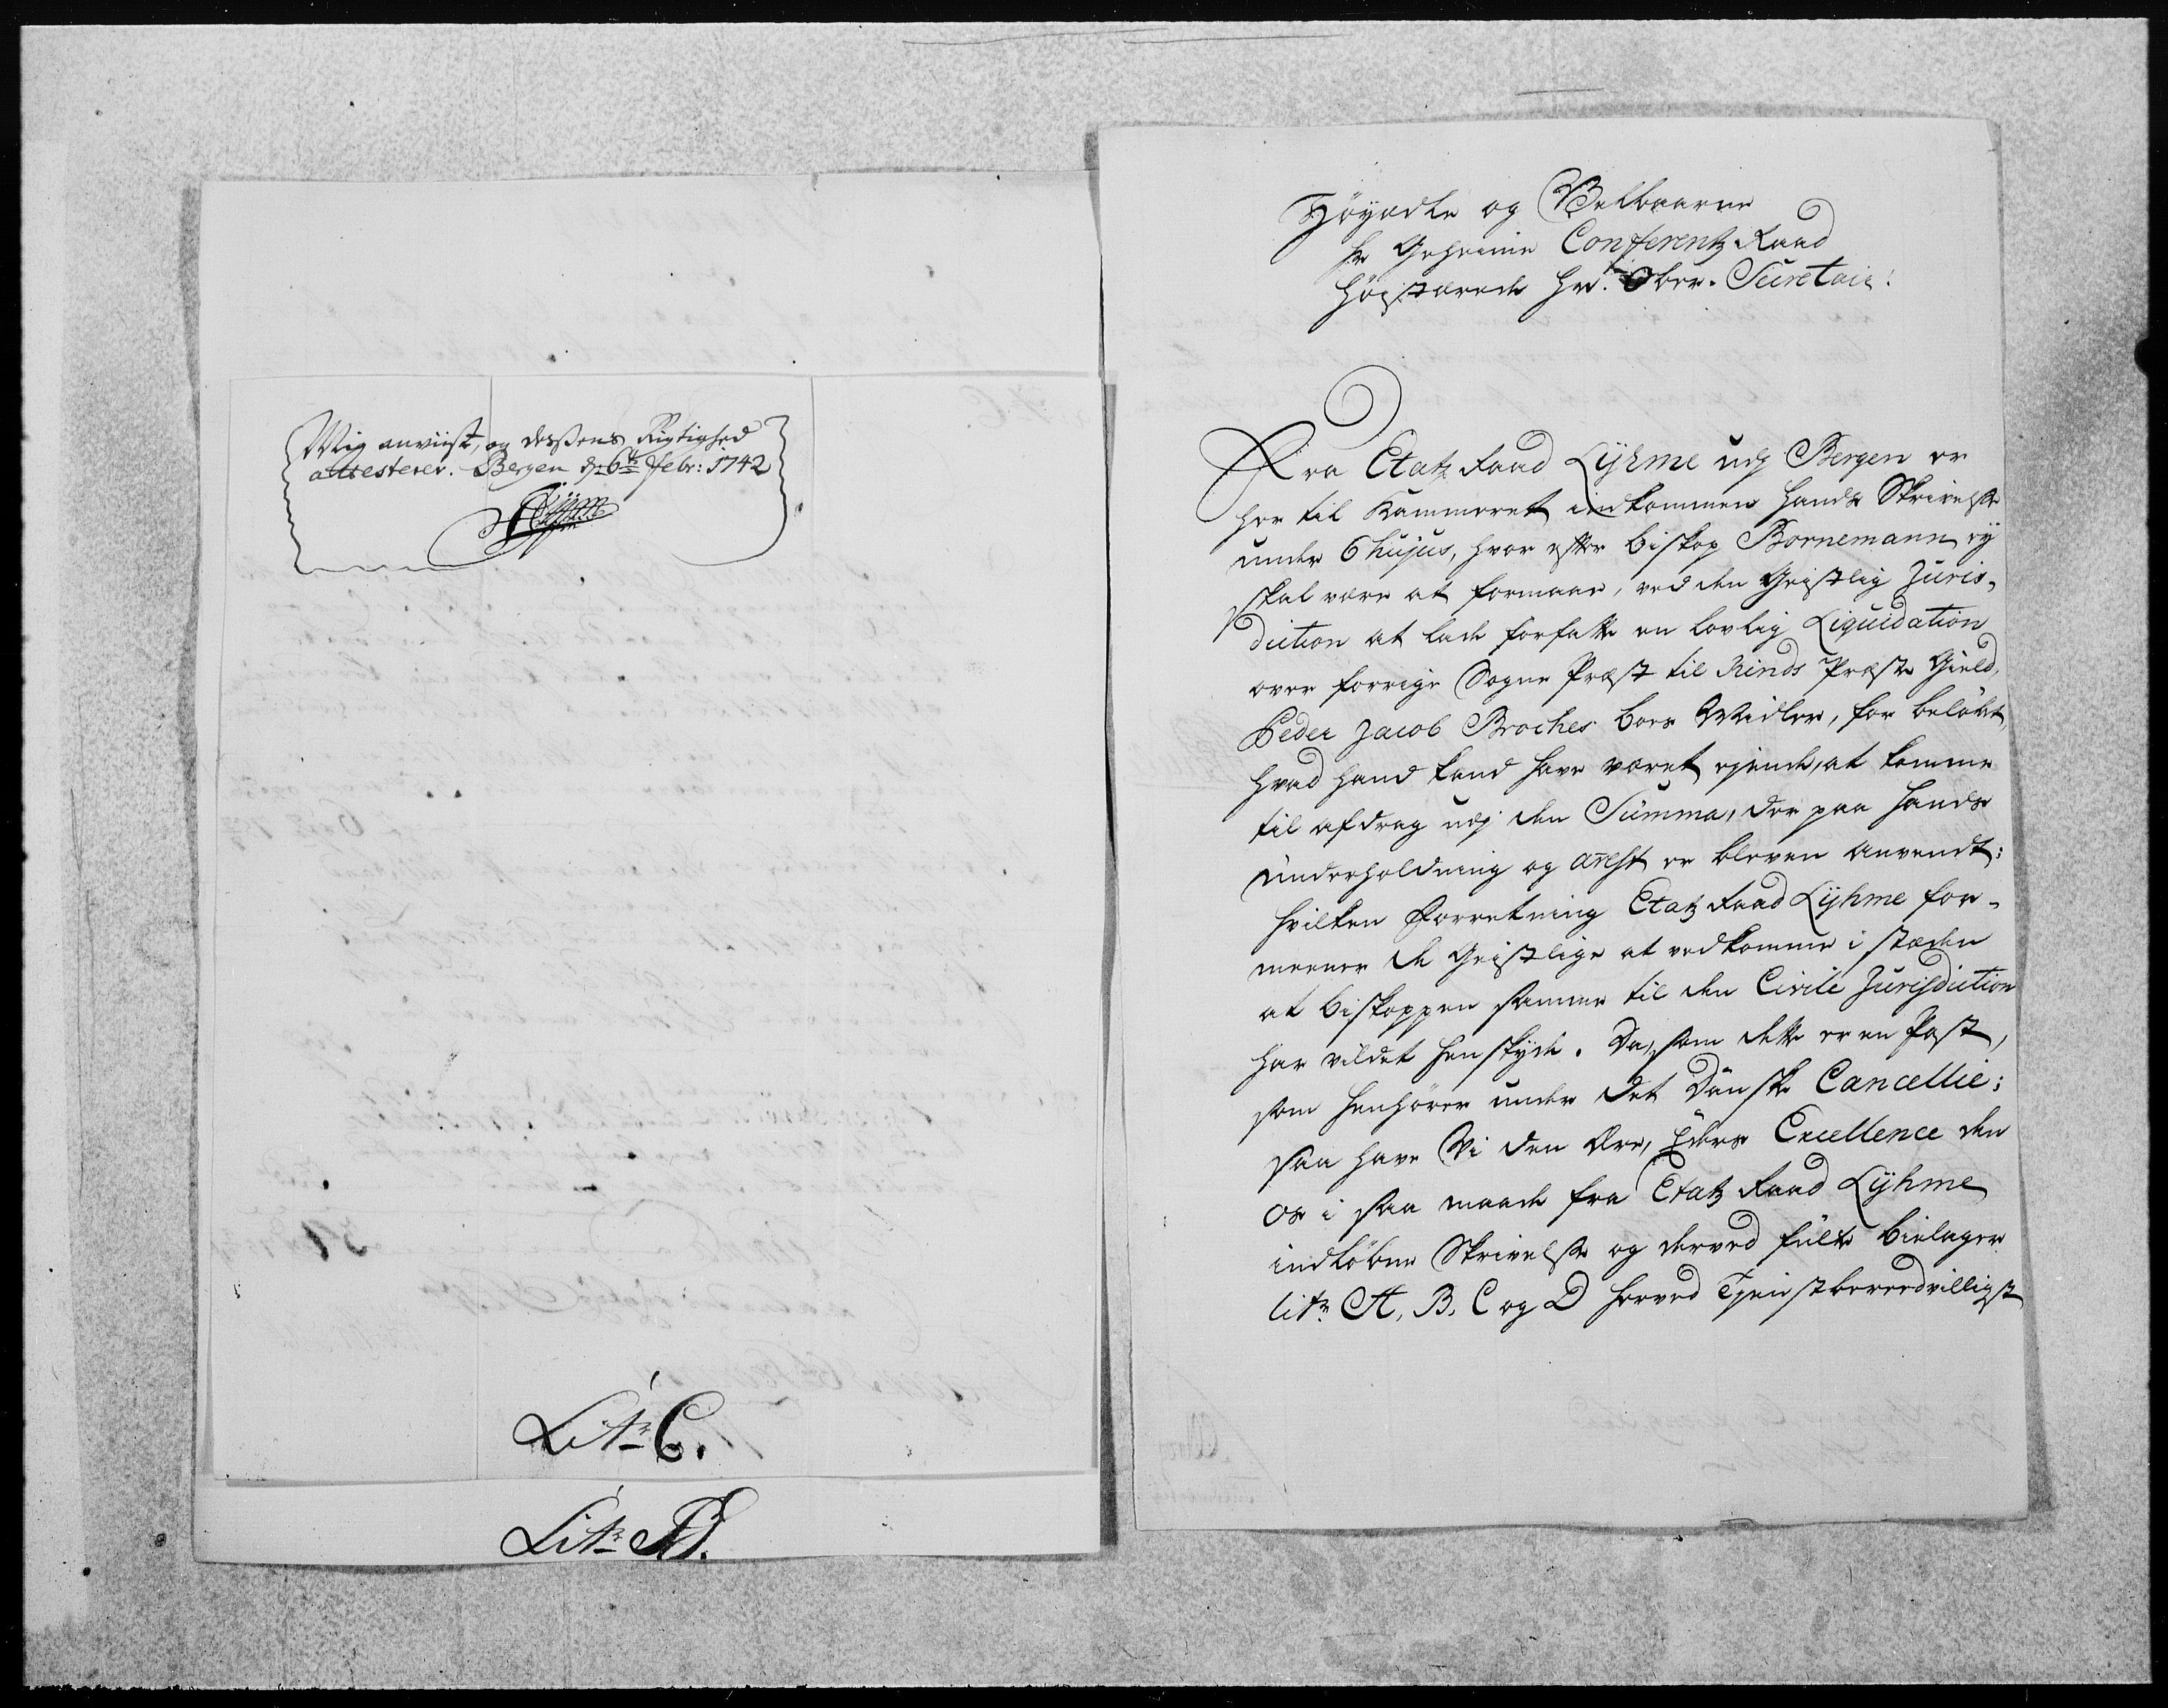 Mig anviist, og dessens Rigtighed
attesterer. Bergen d: 6te Febr: 1742
Litr C.
Litr D.
Høyædle og Velbaarne
Hr Geheime Conferentz Raad
Høistærede Hr. Ober-Secretair!
Fra Etatz Raad Lyhme udj Bergen er
her til Kammeret indkommen hands Skrivelse
under 6 hujus, hvor efter Biskop Bornemann ey
skal være at formaae, ved den Geistlig Juris-
diction at lade forfatte en lovlig Liquidation
over forrige Sogne Præst til Kinds Præste Gield,
Peder Jacob Broches Boes Midler, for beløbet,
hvad hand kand have været eyende, at komme
til afdrag udj den Summa, der paa hands
underholdning og arest er bleven anvendt;
hvilken Forretning Etatz Raad Lyhme for-
meener de Geistlige at vedkomme i stæden
at Biskoppen samme til den Civile Jurisdiction
har vildet henskyde. Da, som dette er en Post,
som henhører under det Danske Cancellie;
saa have Vi den Ære, Eders Excellence den
os i saa maade fra Etatz Raad Lyhme
indløbne Skrivelse og derved fulte bielager
litr A, B, C og D herved Tjenistbereedvilligst